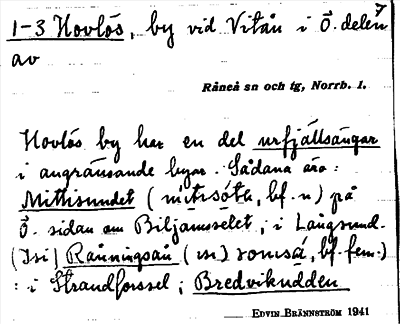 1-3 Hovlös, by vid Vitån i Ö. delen
av
Råneå sn och tg, Norrb. l.
Hovlös by har en del urfjällsängar
i angränsande byar. Sådana äro:
Mittisundet (mitısóta, bf. n) på
Ö. sidan om Biljamselet, i Långsund.
(Isi) Rånningsån (isi) bf. fem.)
: i Strandforssel; Bredvikudden
EDVIN BRÄNNSTRÖM 1941